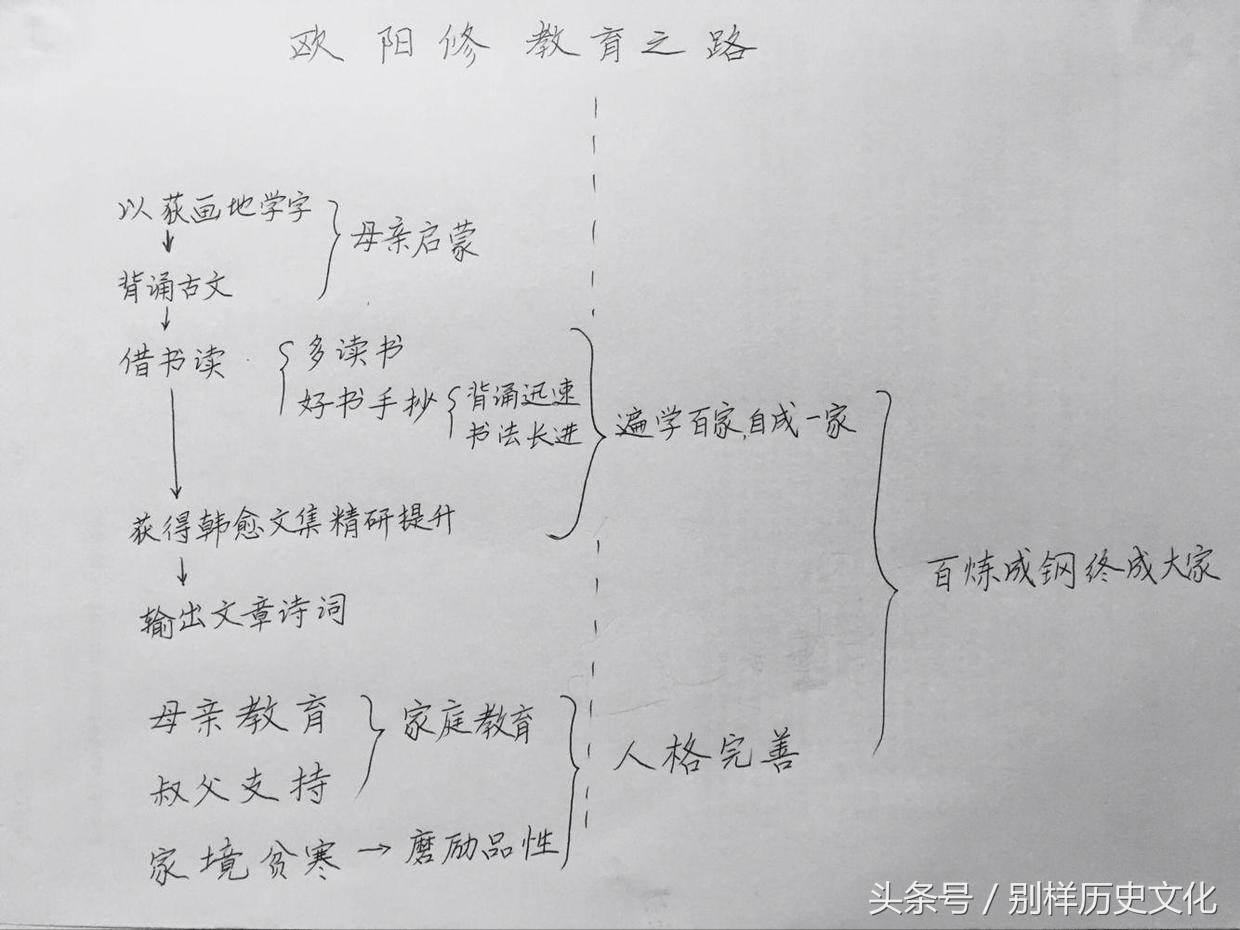 欧阳修教育之路
以荻画地学字
母亲启蒙
背诵古文
借书读
多读书
好书手抄
背诵迅速
书法长进
遍学百家,自成一家
获得韩愈文集精研提升
输出文章诗词
百炼成钢终成大家
母亲教育
叔父支持
家庭教育
家境贫寒→磨励品性
人格完善
头条号 / 别样历史文化